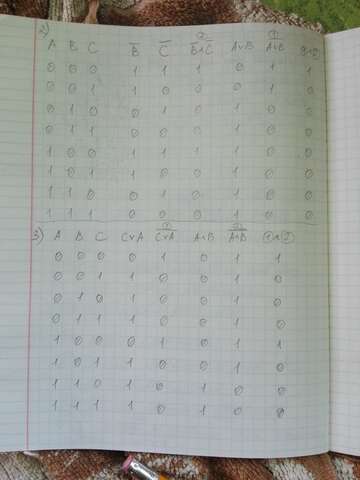 2)
A B C B̅ C̅ B̅∧C̅ A∨B A∨B
0 0 0 1 1 1 0 1 1
0 0 1 1 0 0 0 1 0
0 1 0 0 1 0 1 0 0
0 1 1 0 0 0 1 0 0
1 0 0 1 1 1 1 0 0
1 0 1 1 0 0 1 0 0
1 1 0 0 1 0 1 0 0
1 1 1 0 0 0 1 0 0
3) A B C C∨A C∨A A∧B A∧B ①∧②
0 0 0 0 1 0 1 1
0 0 1 1 0 0 1 0
0 1 0 1 0 0 1 0
0 1 1 1 0 0 1 0
1 0 0 0 1 0 1 1
1 0 1 1 0 0 1 0
1 1 0 1 0 1 0 0
1 1 1 1 0 1 0 0